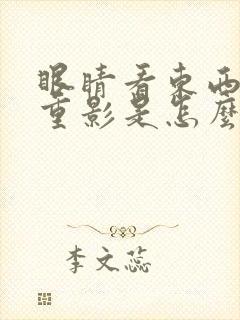 眼睛看東西
重影是怎麼
李文蕊